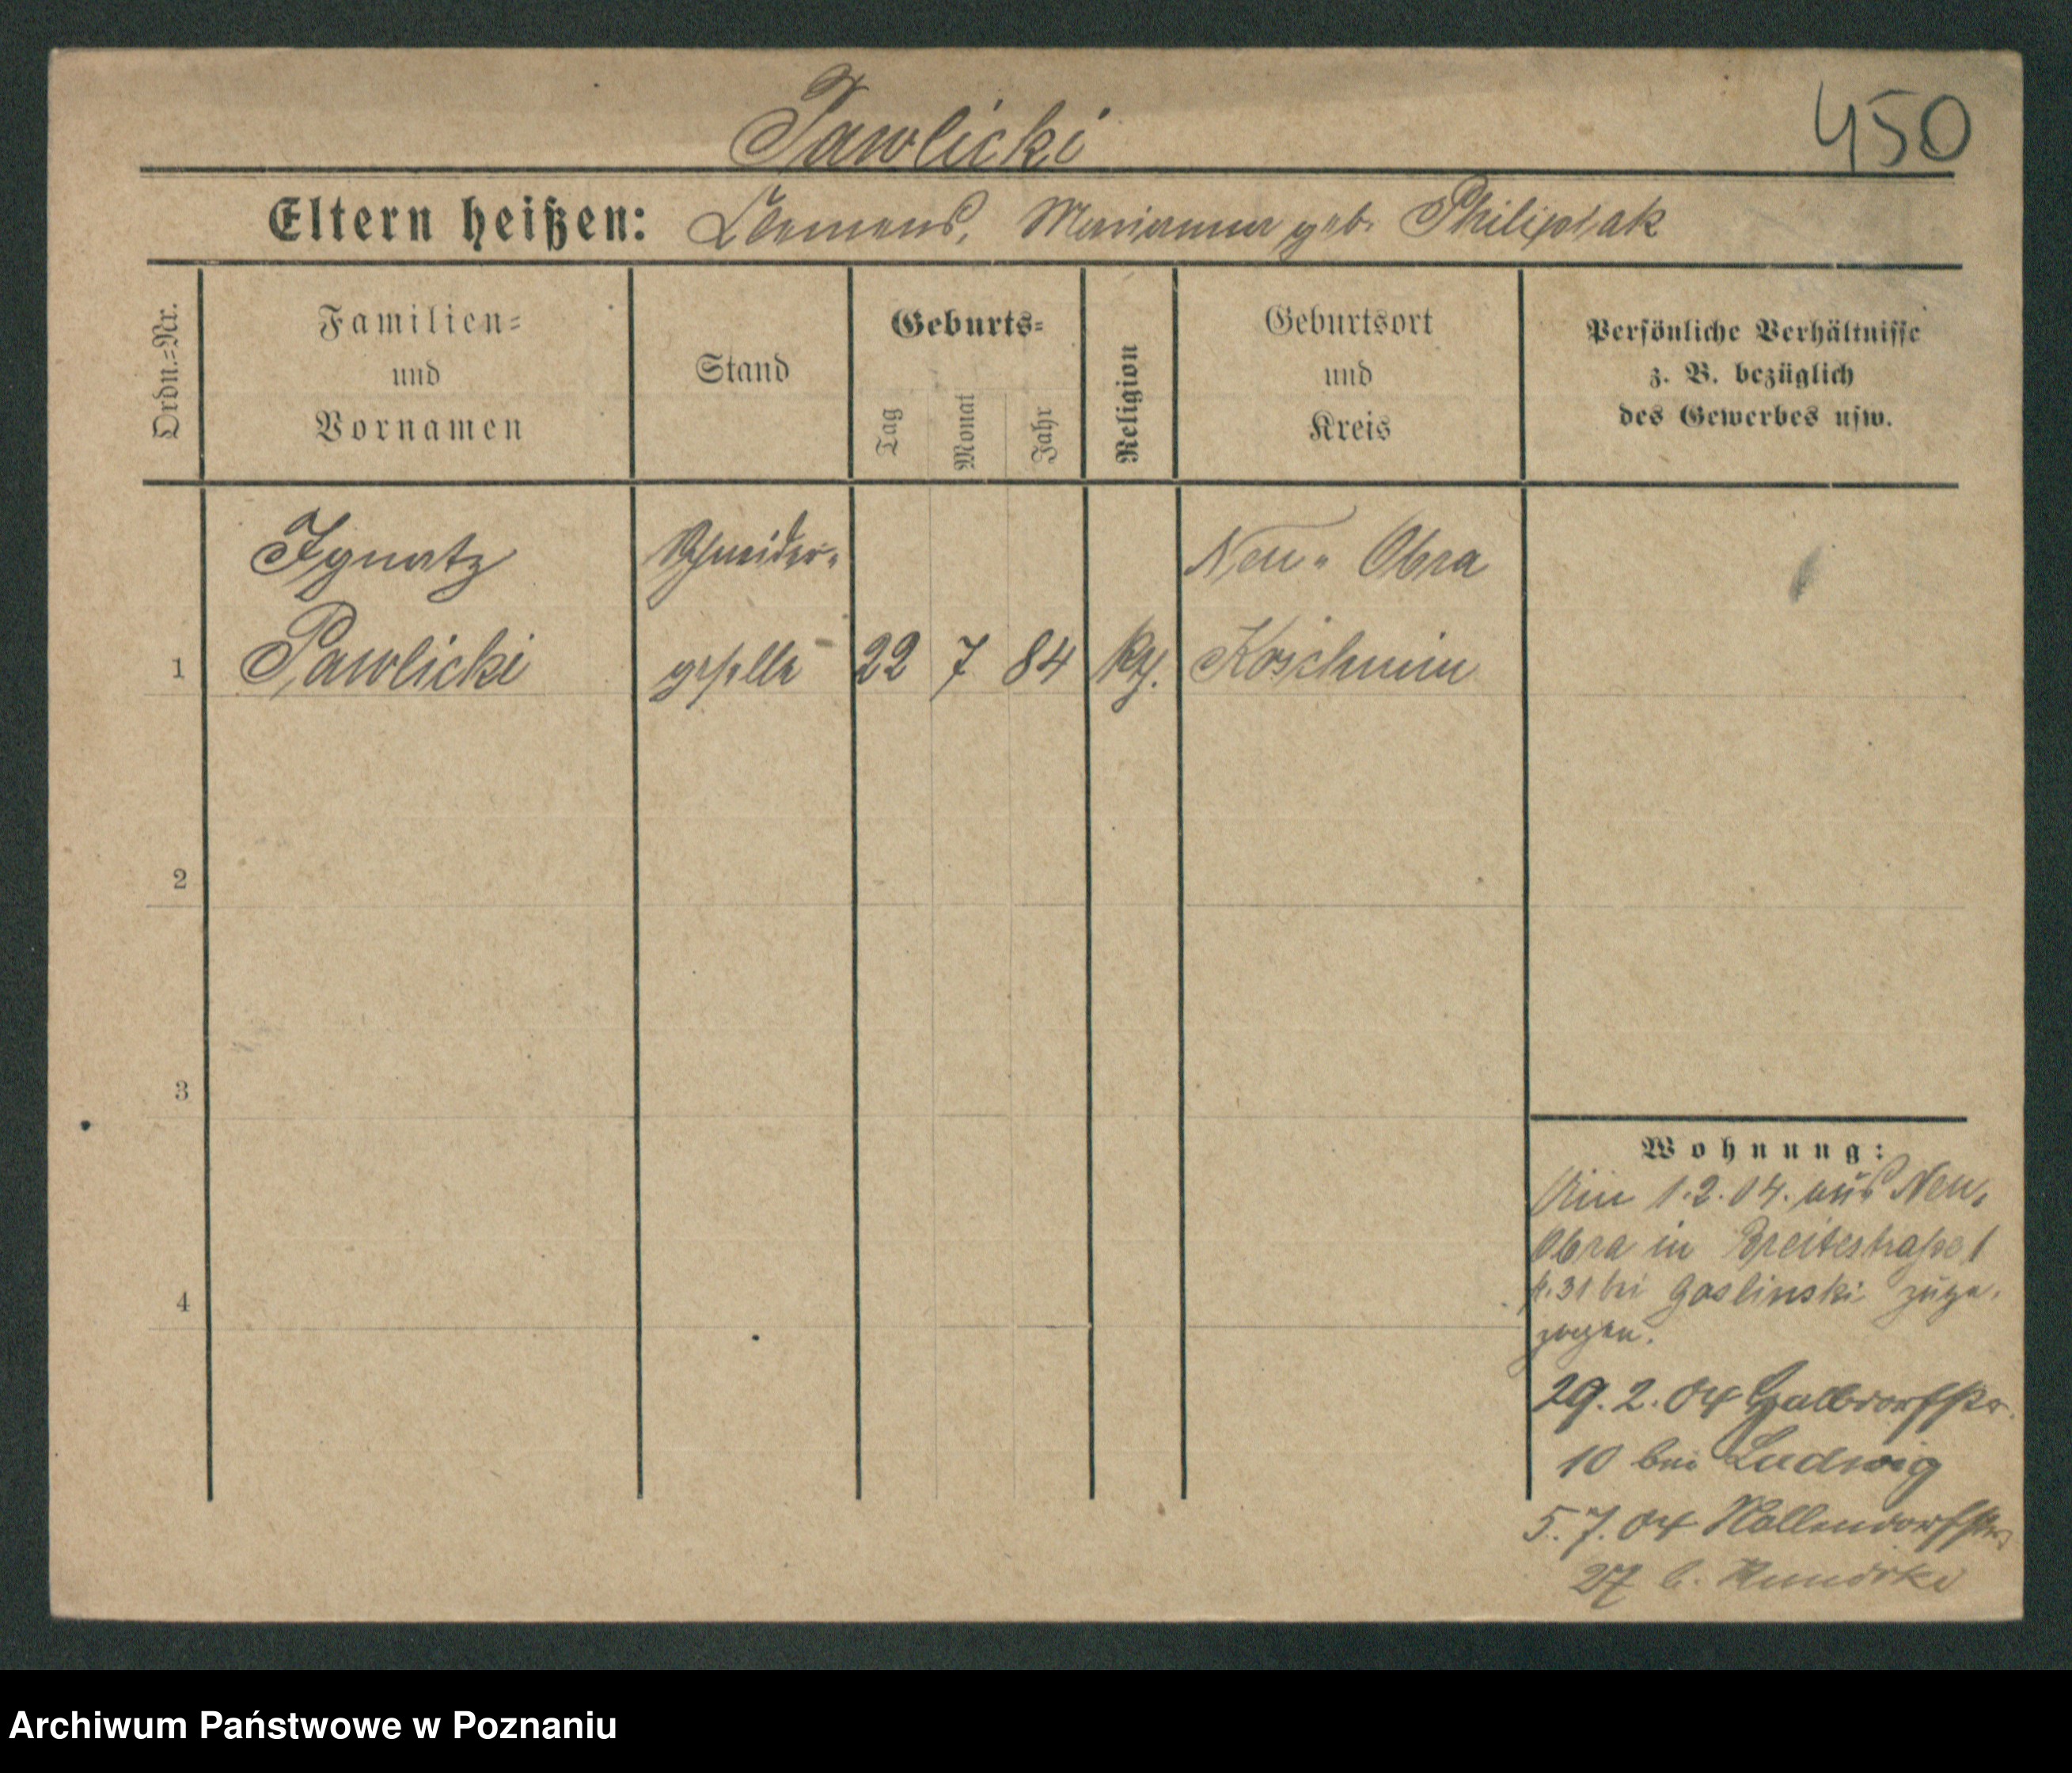 Pawlicki
450
Eltern heißen: Clemens, Marianna geb. Philipiak
Ordn.=Nr.
Familien=
und
Vornamen
Stand
Geburts=
Tag
Monat
Jahr
Religion
Geburtsort
und
Kreis
Persönliche Verhältnisse
z. B. bezüglich
des Gewerbes usw.
Ignatz Schneider- Neu- Obra
1 Pawlicki geselle 22 7 84 Koschmin
2
3
4
Wohnung:
1.2.04. aus Neu-
Obra in Breitestraße
31 bei Goslinski zuge-
zogen.
29. 2. 04
10 bei Ludwig
5. 7. 04 Nollendorfstr.
27 b.
Archiwum Państwowe w Poznaniu